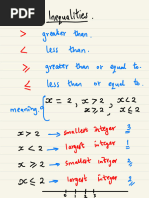 Inequalities.
> greater than.
< less than.
⩾ greater than or equal to.
⩽ less than or equal to.
meaning. { x = 2, x > 2, x < 2
x ⩾ 2 x ⩽ 2
x > 2 → smallest integer 3
x < 2 → largest integer 1
x ⩾ 2 → smallest integer 2
x ⩽ 2 → largest integer 2